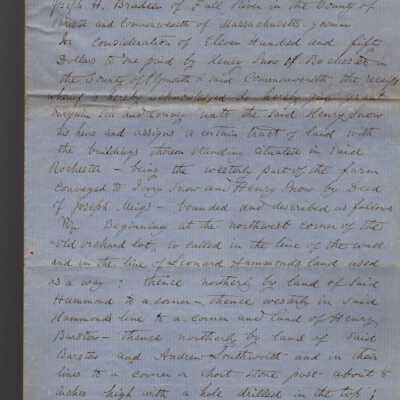 Joseph H. Brabley of Fall River in the County of
and Commonwealth of Massachusetts yeoman
In consideration of Eleven Hundred and fifty
Dollars to me paid by Henry Snow of Rochester in
the County of Plymouth & said Commonwealth the receipt
whereof I hereby acknowledged do hereby give grant
bargain sell and convey unto the said Henry Snow
his heirs and assigns a certain tract of land with
the buildings thereon standing situated in said
Rochester - being the westerly part of the farm
conveyed to Ivory Snow and Henry Snow by Deed
of Joseph Meigs - bounded and described as follows
Viz Beginning at the northwest corner of the
"old orchard lot, so called in the line of the wood
and in the line of Leonard Hammonds land used
as a way; thence northerly by land of said
Hammond to a corner - thence westerly in said
Hammonds line to a corner and land of Henry
thence northerly by land of said
and Andrew Southworth and in their
lines to a corner a short stone post about 8
inches high with a hole drilled in the top;